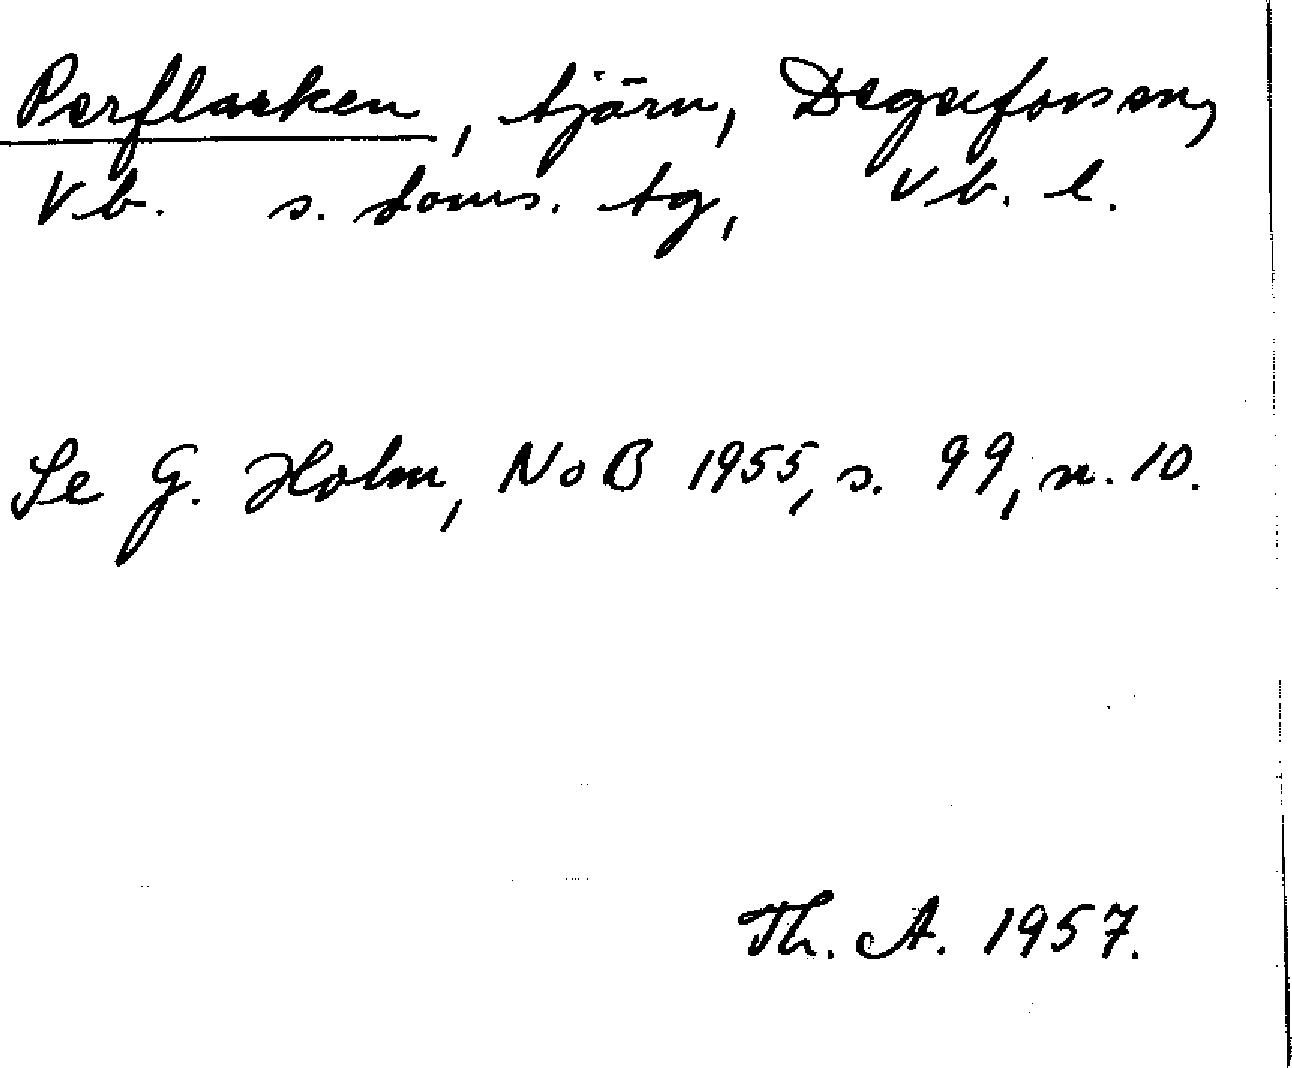 Perflarken, tjärn, Degerforsen,
Vb. s. doms. tg, Vb. l.
Se G. Holm, NoB 1955, s. 99, n. 10.
Th. A. 1957.